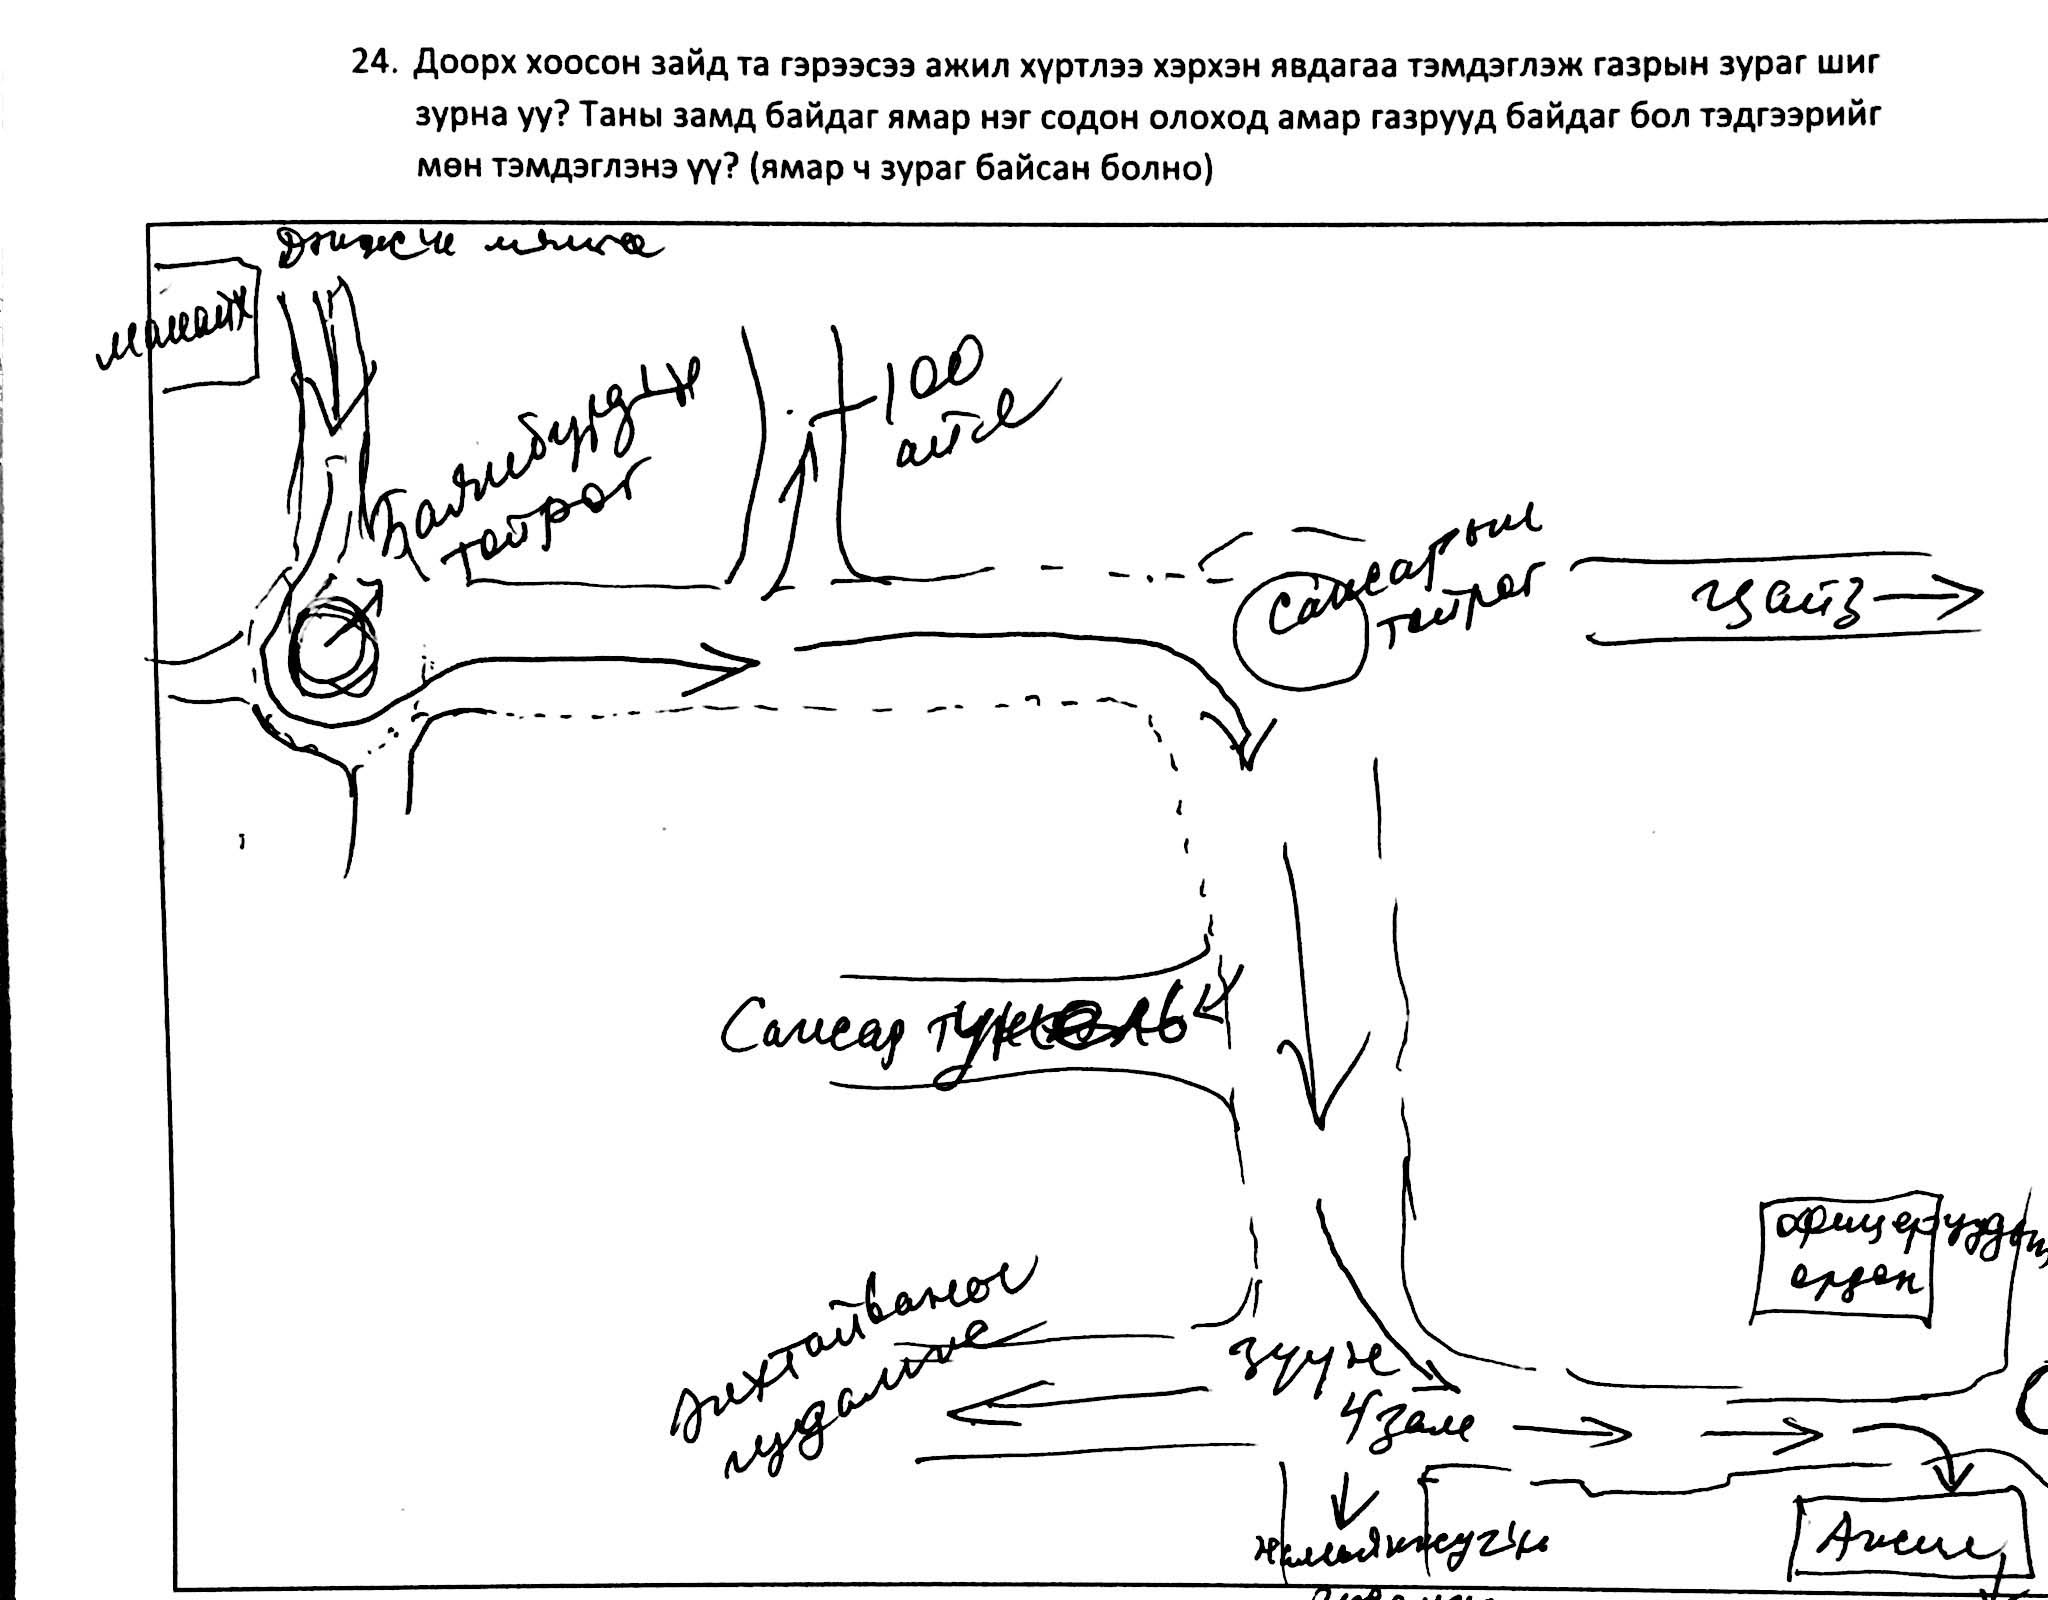 24. Доорх хоосон зайд та гэрээсээ ажил хүртлээ хэрхэн явдагаа тэмдэглэж газрын зураг шиг
зурна уу? Таны замд байдаг ямар нэг содон олоход амар газрууд байдаг бол тэдгээрийг
мөн тэмдэглэнэ үү? (ямар ч зураг байсан болно)
Дэнжийн мянга
манайх
Баянбүрдийн
тойрог
100
айл
Сансарын
тойрог
Цайз
Сансар тунель
Энхтайваны
гудамж
зүүн
4 зам
офицеруудын
ордон
Ажил